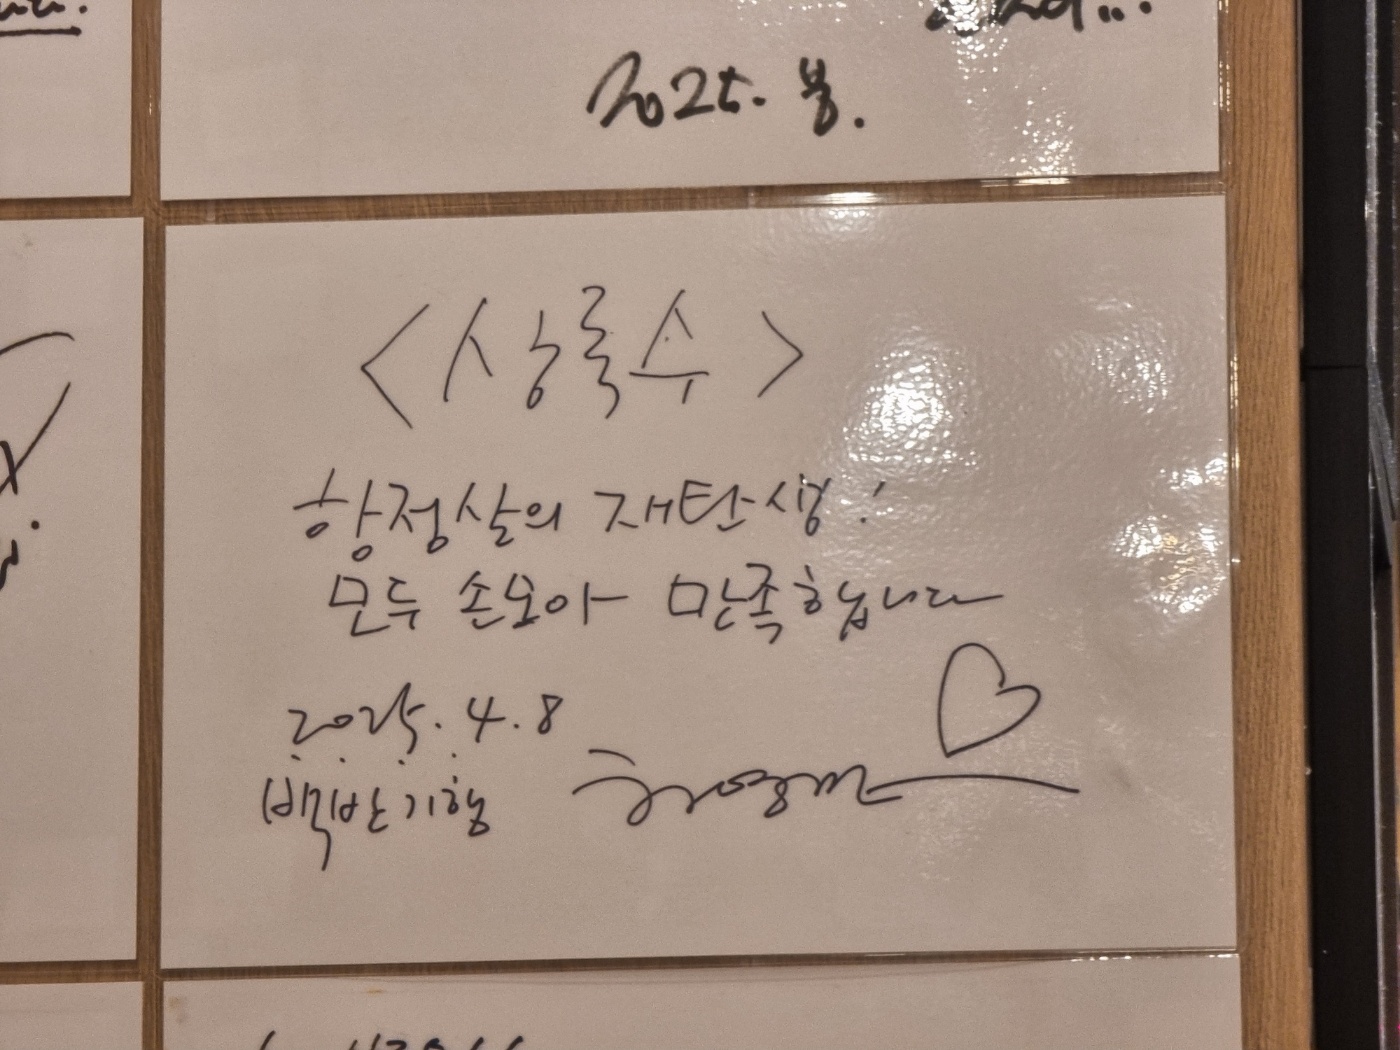 2025. 봄.
<상록수>
항정살의 재탄생!
모두 손모아 만족합니다
2025. 4. 8
백반기행 허영만